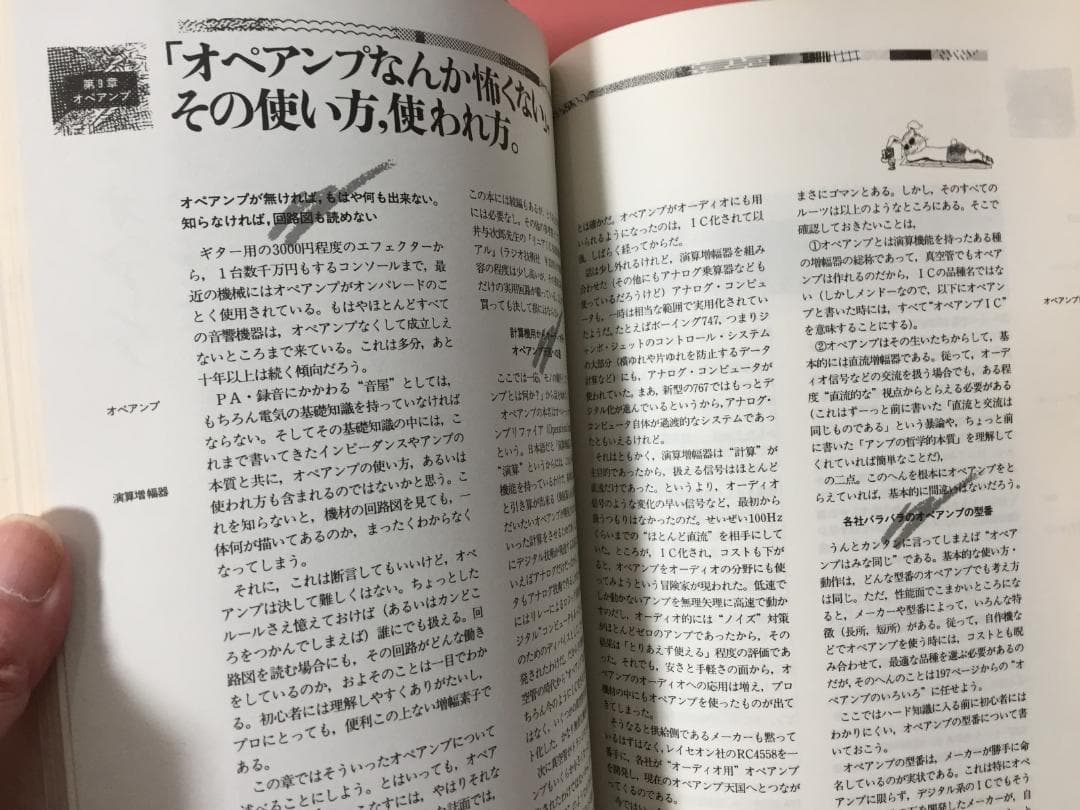 第9章
オペアンプ
「オペアンプなんか怖くない」
その使い方,使われ方。
オペアンプが無ければ,もはや何も出来ない。
知らなければ,回路図も読めない
ギター用の3000円程度のエフェクターか
ら,1台数千万円もするコンソールまで,最
近の機械にはオペアンプがオンパレードのご
とく使用されている。もはやほとんどすべて
の音響機器は,オペアンプなくして成立しえ
ないところまで来ている。これは多分,あと
十年以上は続く傾向だろう。
PA・録音にかかわる“音屋”としては,
もちろん電気の基礎知識を持っていなければ
ならない。そしてその基礎知識の中には,こ
れまで書いてきたインピーダンスやアンプの
本質と共に,オペアンプの使い方,あるいは
使われ方も含まれるのではないかと思う。こ
れを知らないと,機材の回路図を見ても,一
体何が描いてあるのか,まったくわからなく
なってしまう。
それに,これは断言してもいいけど,オペ
アンプは決して難しくはない。ちょっとした
ルールさえ憶えておけば(あるいはカンどこ
ろをつかんでしまえば)誰にでも扱える。回
路図を読む場合にも,その回路がどんな働き
をしているのか,およそのことは一目でわか
る。初心者には理解しやすくありがたいし,
プロにとっても,便利この上ない増幅素子で
ある。
この章ではそういったオペアンプについて
述べることにしよう。とはいっても,オペア
オペアンプ
演算増幅器
この本には続編もあるが,
には必要なし。その他の
井与次郎先生の
アル」(ラジオ技術社
容の程度は少し高いが,
だけの実用回路が載っている。
買っても決して損には
計算機用か
オペアンプ
ここでは一応,
ンプとは何か?」から
オペアンプの本名は
ンプリファイア
という。日本語だと「演算
“演算”というからには,
機能を持っているわけで,
と引き算が出来る
だいたいオペアンプが
いった計算をさせるため
にデジタル技術が発達する
いえばアナログだけだった
タもアナログ技術で作
にはリレーによる
デジタル“コンピュータ
のためのディバイスとし
発されたわけだ。だから
空管の時代から“オペア
ちろん今のようにIC
はなく,いくつかの
ト化した,かなり
次に真空管が
とは確かだ。オペアンプがオーディオにも用
いられるようになったのは,IC化されて以
後,しばらく経ってからだ。
話は少し外れるけれど,演算増幅器を組み
合わせた(その他にもアナログ乗算器なども
使っているだろうけど)アナログ・コンピュ
ータも,一時は相当な範囲で実用化されてい
たようだ。たとえばボーイング747,つまりジ
ャンボ・ジェットのコントロール・システム
の大部分(横ゆれや片ゆれを防止するデータ
計算など)にも,アナログ・コンピュータが
使われていた。まあ,新型の767ではもっとデ
ジタル化が進んでいるというから,アナログ・
コンピュータ自体が過渡的なシステムであっ
たともいえるけれど。
それはともかく,演算増幅器は“計算”が
主目的であったから,扱える信号はほとんど
直流だけであった。というより,オーディオ
信号のような変化の早い信号など,最初から
扱うつもりはなかったのだ。せいぜい100Hz
くらいまでの“ほとんど直流”を相手にして
いた。ところが,IC化され,コストも下が
ると,オペアンプをオーディオの分野にも使
ってみようという冒険家が現われた。低速で
しか動かないアンプを無理矢理に高速で動か
すのだし,オーディオ的には“ノイズ”対策
がほとんどゼロのアンプであったから,その
結果は「とりあえず使える」程度の評価であ
った。それでも,安さと手軽さの面から,オ
ペアンプのオーディオへの応用は増え,プロ
機材の中にもオペアンプを使ったものが出て
きてしまった。
そうなると供給側であるメーカーも黙って
いるはずはなく,レイセオン社のRC4558を一
番手に,各社が“オーディオ用”オペアンプ
を開発し,現在のオペアンプ天国へとつなが
ってくるのである。
まさにゴマンとある。しかし,そのすべての
ルーツは以上のようなところにある。そこで
確認しておきたいことは,
①オペアンプとは演算機能を持ったある種
の増幅器の総称であって,真空管でもオペア
ンプは作れるのだから,ICの品種名ではな
い(しかしメンドーなので,以下にオペアン
プと書いた時には,すべて“オペアンプIC”
を意味することにする)。
②オペアンプはその生いたちからして,基
本的には直流増幅器である。従って,オーデ
ィオ信号などの交流を扱う場合でも,ある程
度“直流的な”視点からとらえる必要がある
(これはずーっと前に書いた「直流と交流は
同じものである」という暴論や,ちょっと前
に書いた「アンプの哲学的本質」を理解して
くれていれば簡単なことだ),
の二点。このへんを根本にオペアンプをと
らえていれば,基本的に間違いはないだろう。
各社バラバラのオペアンプの型番
うんとカンタンに言ってしまえば“オペア
ンプはみな同じ”である。基本的な使い方・
動作は,どんな型番のオペアンプでも考え方
は同じ。ただ,性能面でこまかいところにな
ると,メーカーや型番によって,いろんな特
徴(長所,短所)がある。従って,自作機な
どでオペアンプを使う時には,コストとも睨
み合わせて,最適な品種を選ぶ必要があるの
だが,そのへんのことは197ページからの“オ
ペアンプのいろいろ”に任せよう。
ここではハード知識に入る前に初心者には
わかりにくい,オペアンプの型番について書
いておこう。
オペアンプの型番は,メーカーが勝手に命
名しているのが実状である。これは特にオペ
アンプに限らず,デジタル系のICでもそう
オペアンプ